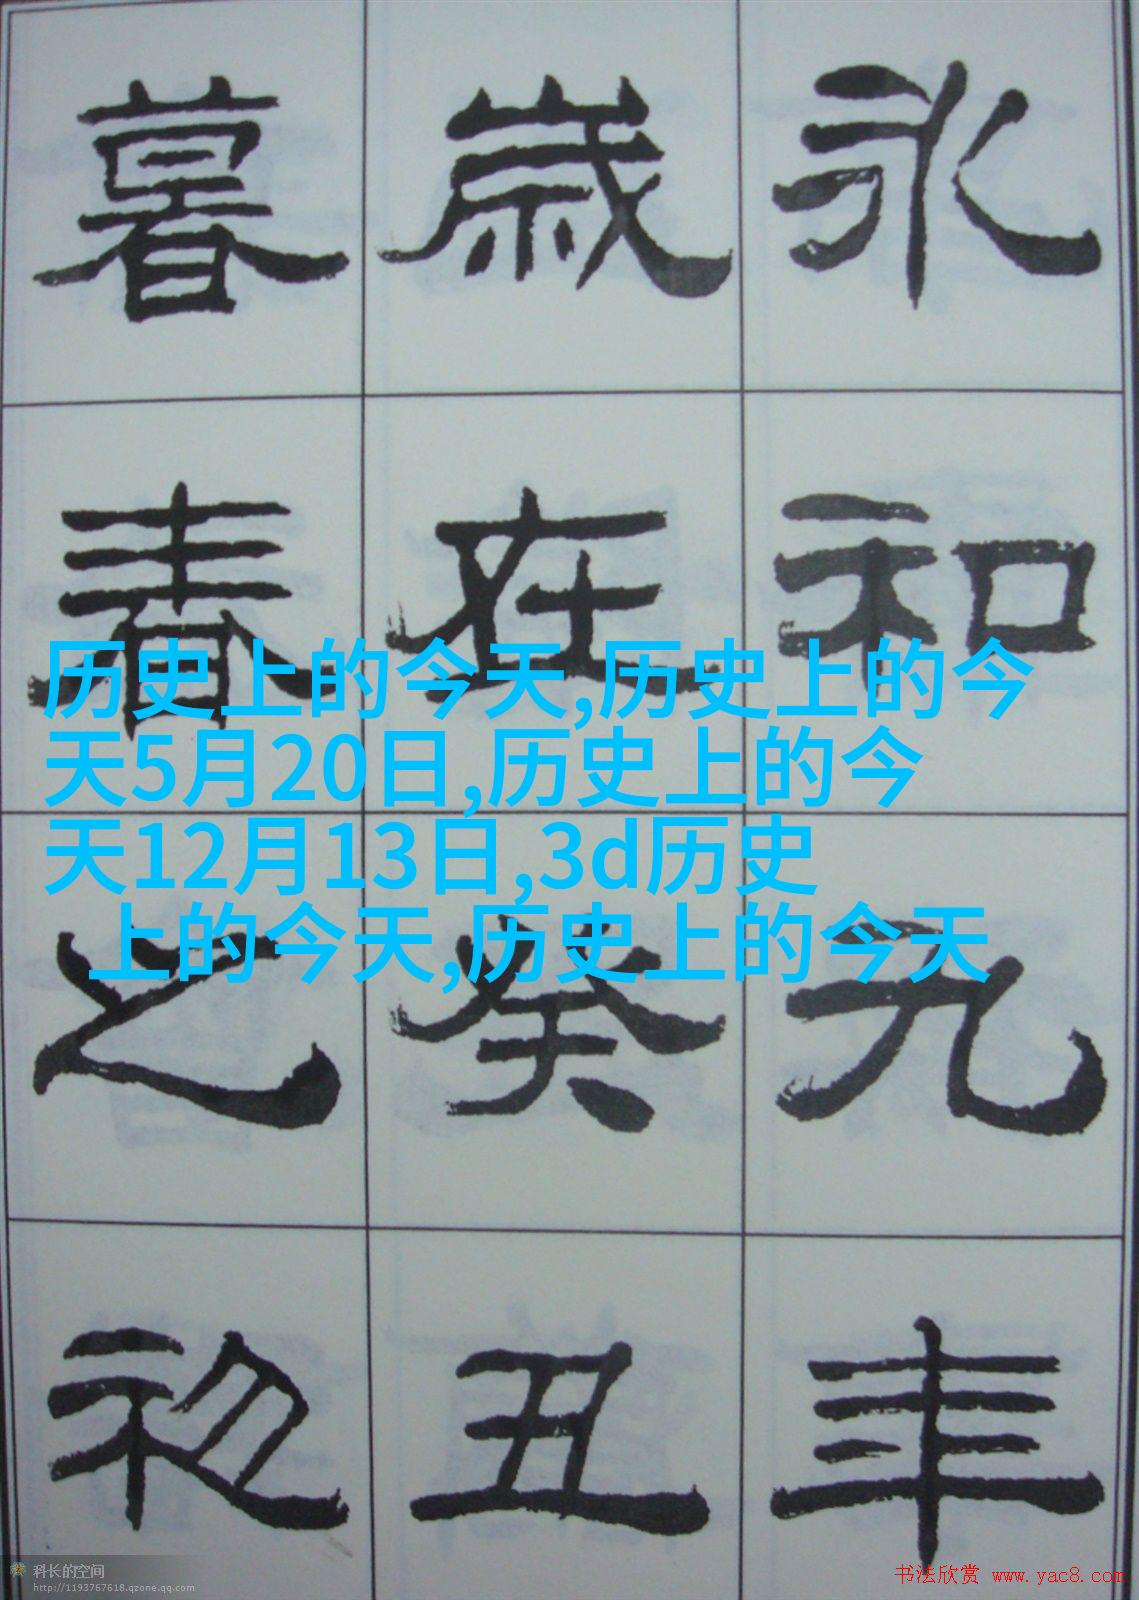 永和九年
歲在癸丑
暮春之初
历史上的今天,历史上的今
天5月20日,历史上的今
天12月13日,3d历史
上的今天,历史上的今天
科长的空间
http://1193767618.qzone.qq.com
书法欣赏 www.yac8.com